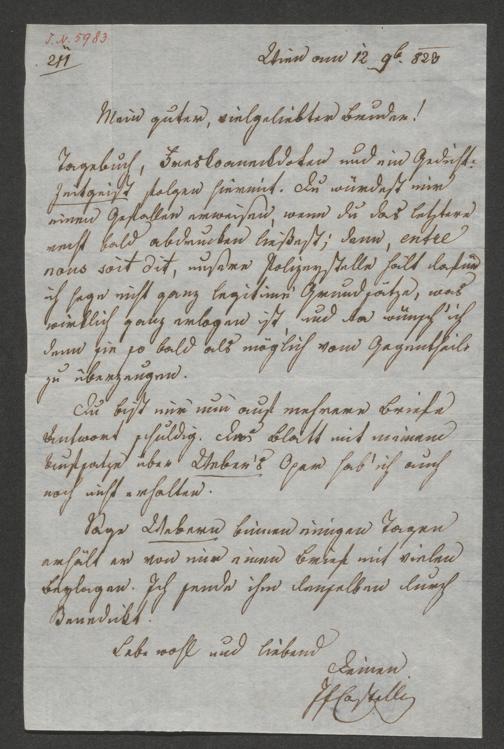 I. N. 5983
211
Wien am 12 9b. 823
Mein guter, vielgeliebter Bruder!
Tagebuch, und ein Gedicht:
Zeitgeist folgen hiermit. Du würdest mir
einen Gefallen erweisen, wenn du das letztere
recht bald abdrucken ließest; denn, entre
nous soit dit, unsere Polizeystelle hält dafür
ich hege nicht ganz legitime Grundsätze, was
wirklich ganz erlogen ist, und da wünsch' ich
denn sie so bald als möglich vom Gegentheil
zu überzeugen.
Du bist mir nun auf mehrere Briefe
Antwort schuldig. Das Blatt mit meinem
Aufsatze über Weber's Oper hab' ich auch
noch nicht erhalten.
Sage Webern binnen einigen Tagen
erhält er von mir einen Brief mit vielen
Beylagen. Ich sende ihm denselben durch
Benedikt.
Lebe wohl und liebend
Deinen
IFCastelli